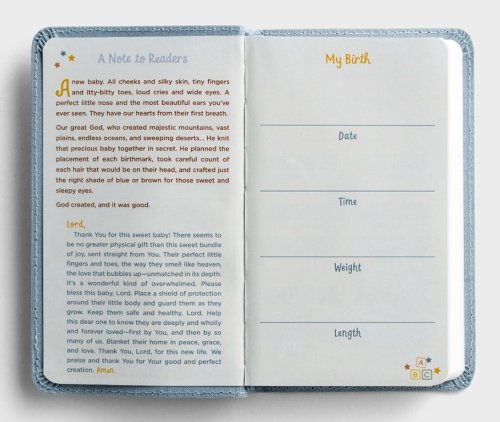 A Note to Readers
A new baby. All cheeks and silky skin, tiny fingers
and itty-bitty toes, loud cries and wide eyes. A
perfect little nose and the most beautiful ears you've
ever seen. They have our hearts from their first breath.
Our great God, who created majestic mountains, vast
plains, endless oceans, and sweeping deserts... He knit
that precious baby together in secret. He planned the
placement of each birthmark, took careful count of
each hair that would be on their head, and crafted just
the right shade of blue or brown for those sweet and
sleepy eyes.
God created, and it was good.
Lord,
Thank You for this sweet baby! There seems to
be no greater physical gift than this sweet bundle
of joy, sent straight from You. Their perfect little
fingers and toes, the way they smell like heaven,
the love that bubbles up—unmatched in its depth.
It's a wonderful kind of overwhelmed. Please
bless this baby, Lord. Place a shield of protection
around their little body and guard them as they
grow. Keep them safe and healthy, Lord. Help
this dear one to know they are deeply and wholly
and forever loved—first by You, and then by so
many of us. Blanket their home in peace, grace,
and love. Thank You, Lord, for this new life. We
praise and thank You for Your good and perfect
creation. Amen.
My Birth
Date
Time
Weight
Length
A
B C